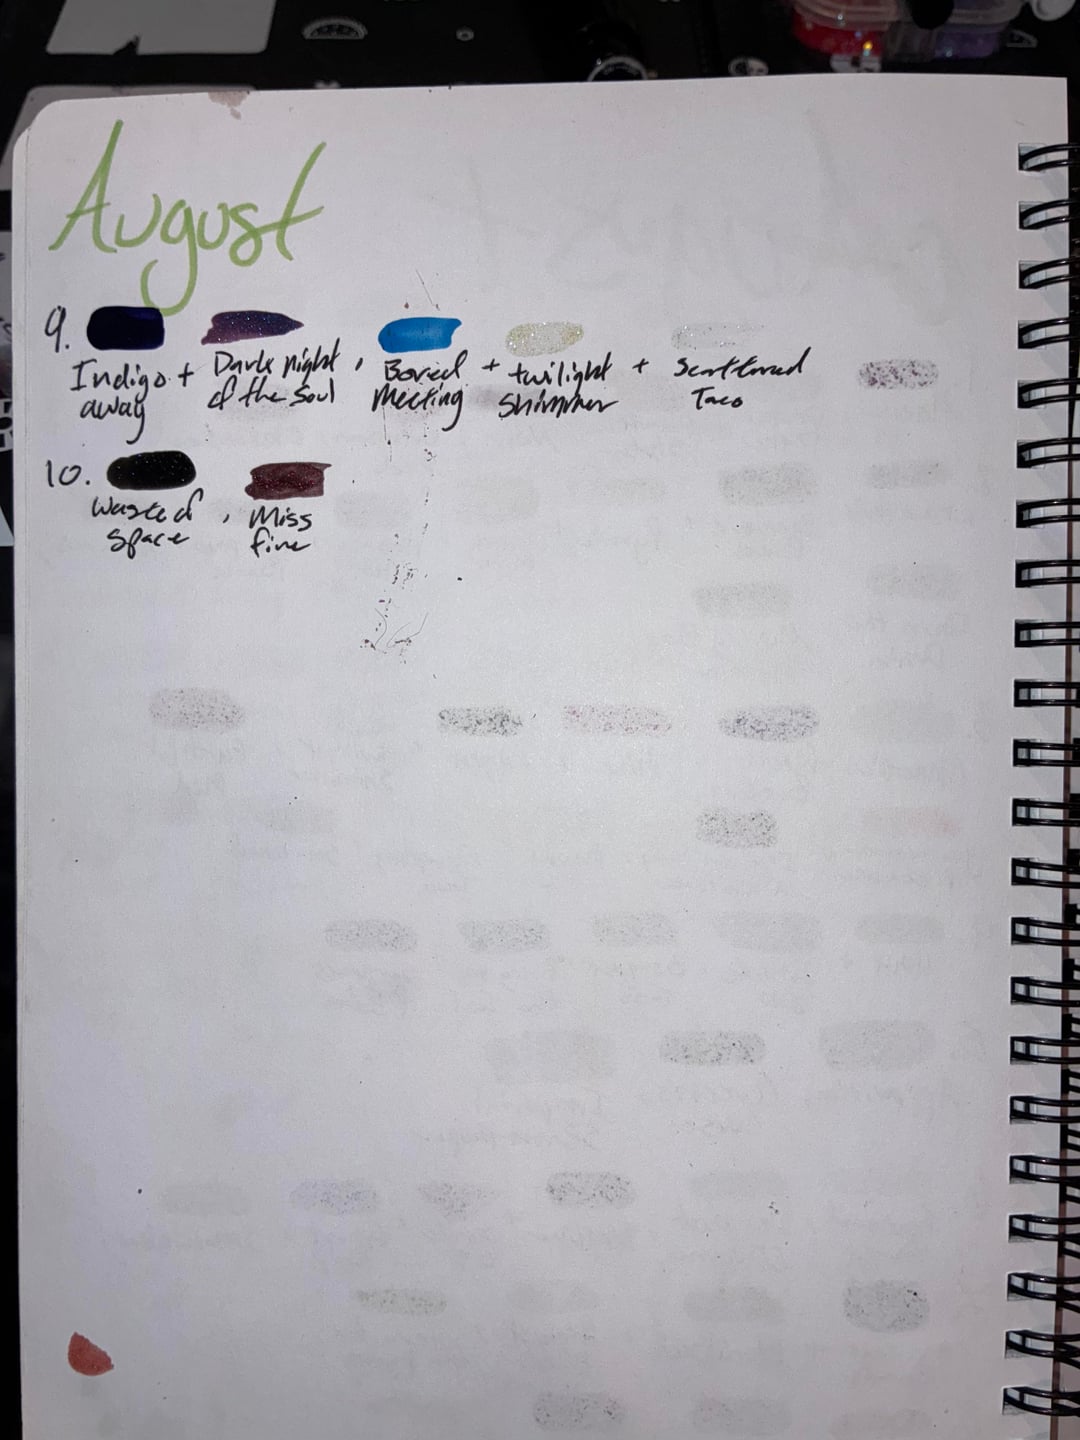 August
9.
Indigo + Dark night , Bored + twilight + Scattered
away of the Soul Meeting Shimmer Taco
10.
Wasted , Miss
Space fire